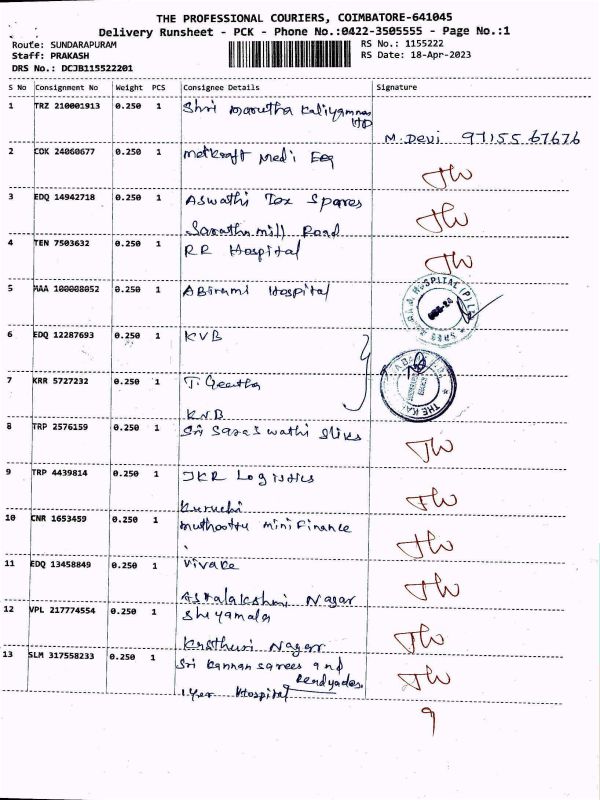 THE PROFESSIONAL COURIERS, COIMBATORE-641045
Delivery Runsheet - PCK - Phone No.:0422-3505555 - Page No.:1
Route: SUNDARAPURAM
RS No.: 1155222
Staff: PRAKASH
RS Date: 18-Apr-2023
DRS No.: DCJB115522201
S No Consignment No Weight PCS Consignee Details Signature
1 TRZ 210001913 0.250 1 Shri marutha Kaliyamman
M. Devi 97155 67676
2 COK 24060677 0.250 1 metkraft Medi Eqq
3 EDQ 14942718 0.250 1 Aswathi Tex Spares
mill Road
4 TEN 7503632 0.250 1 RR Hospital
5 MAA 100008052 0.250 1 Abirami Hospital
6 EDQ 12287693 0.250 1 KVB
7 KRR 5727232 0.250 1 T. Geetha
KVB
8 TRP 2576159 0.250 1 Sri Saraswathi Silks
9 TRP 4439814 0.250 1 JKR Logistics
Kuruchi
10 CNR 1653459 0.250 1 Muthoottu mini Finance
11 EDQ 13458849 0.250 1 Vivake
Astalakshmi Nagar
12 VPL 217774554 0.250 1 Shiyamala
Kasthuri Nagar
13 SLM 317558233 0.250 1 Sri Kannan sarees and
Readyades
Hospital
9